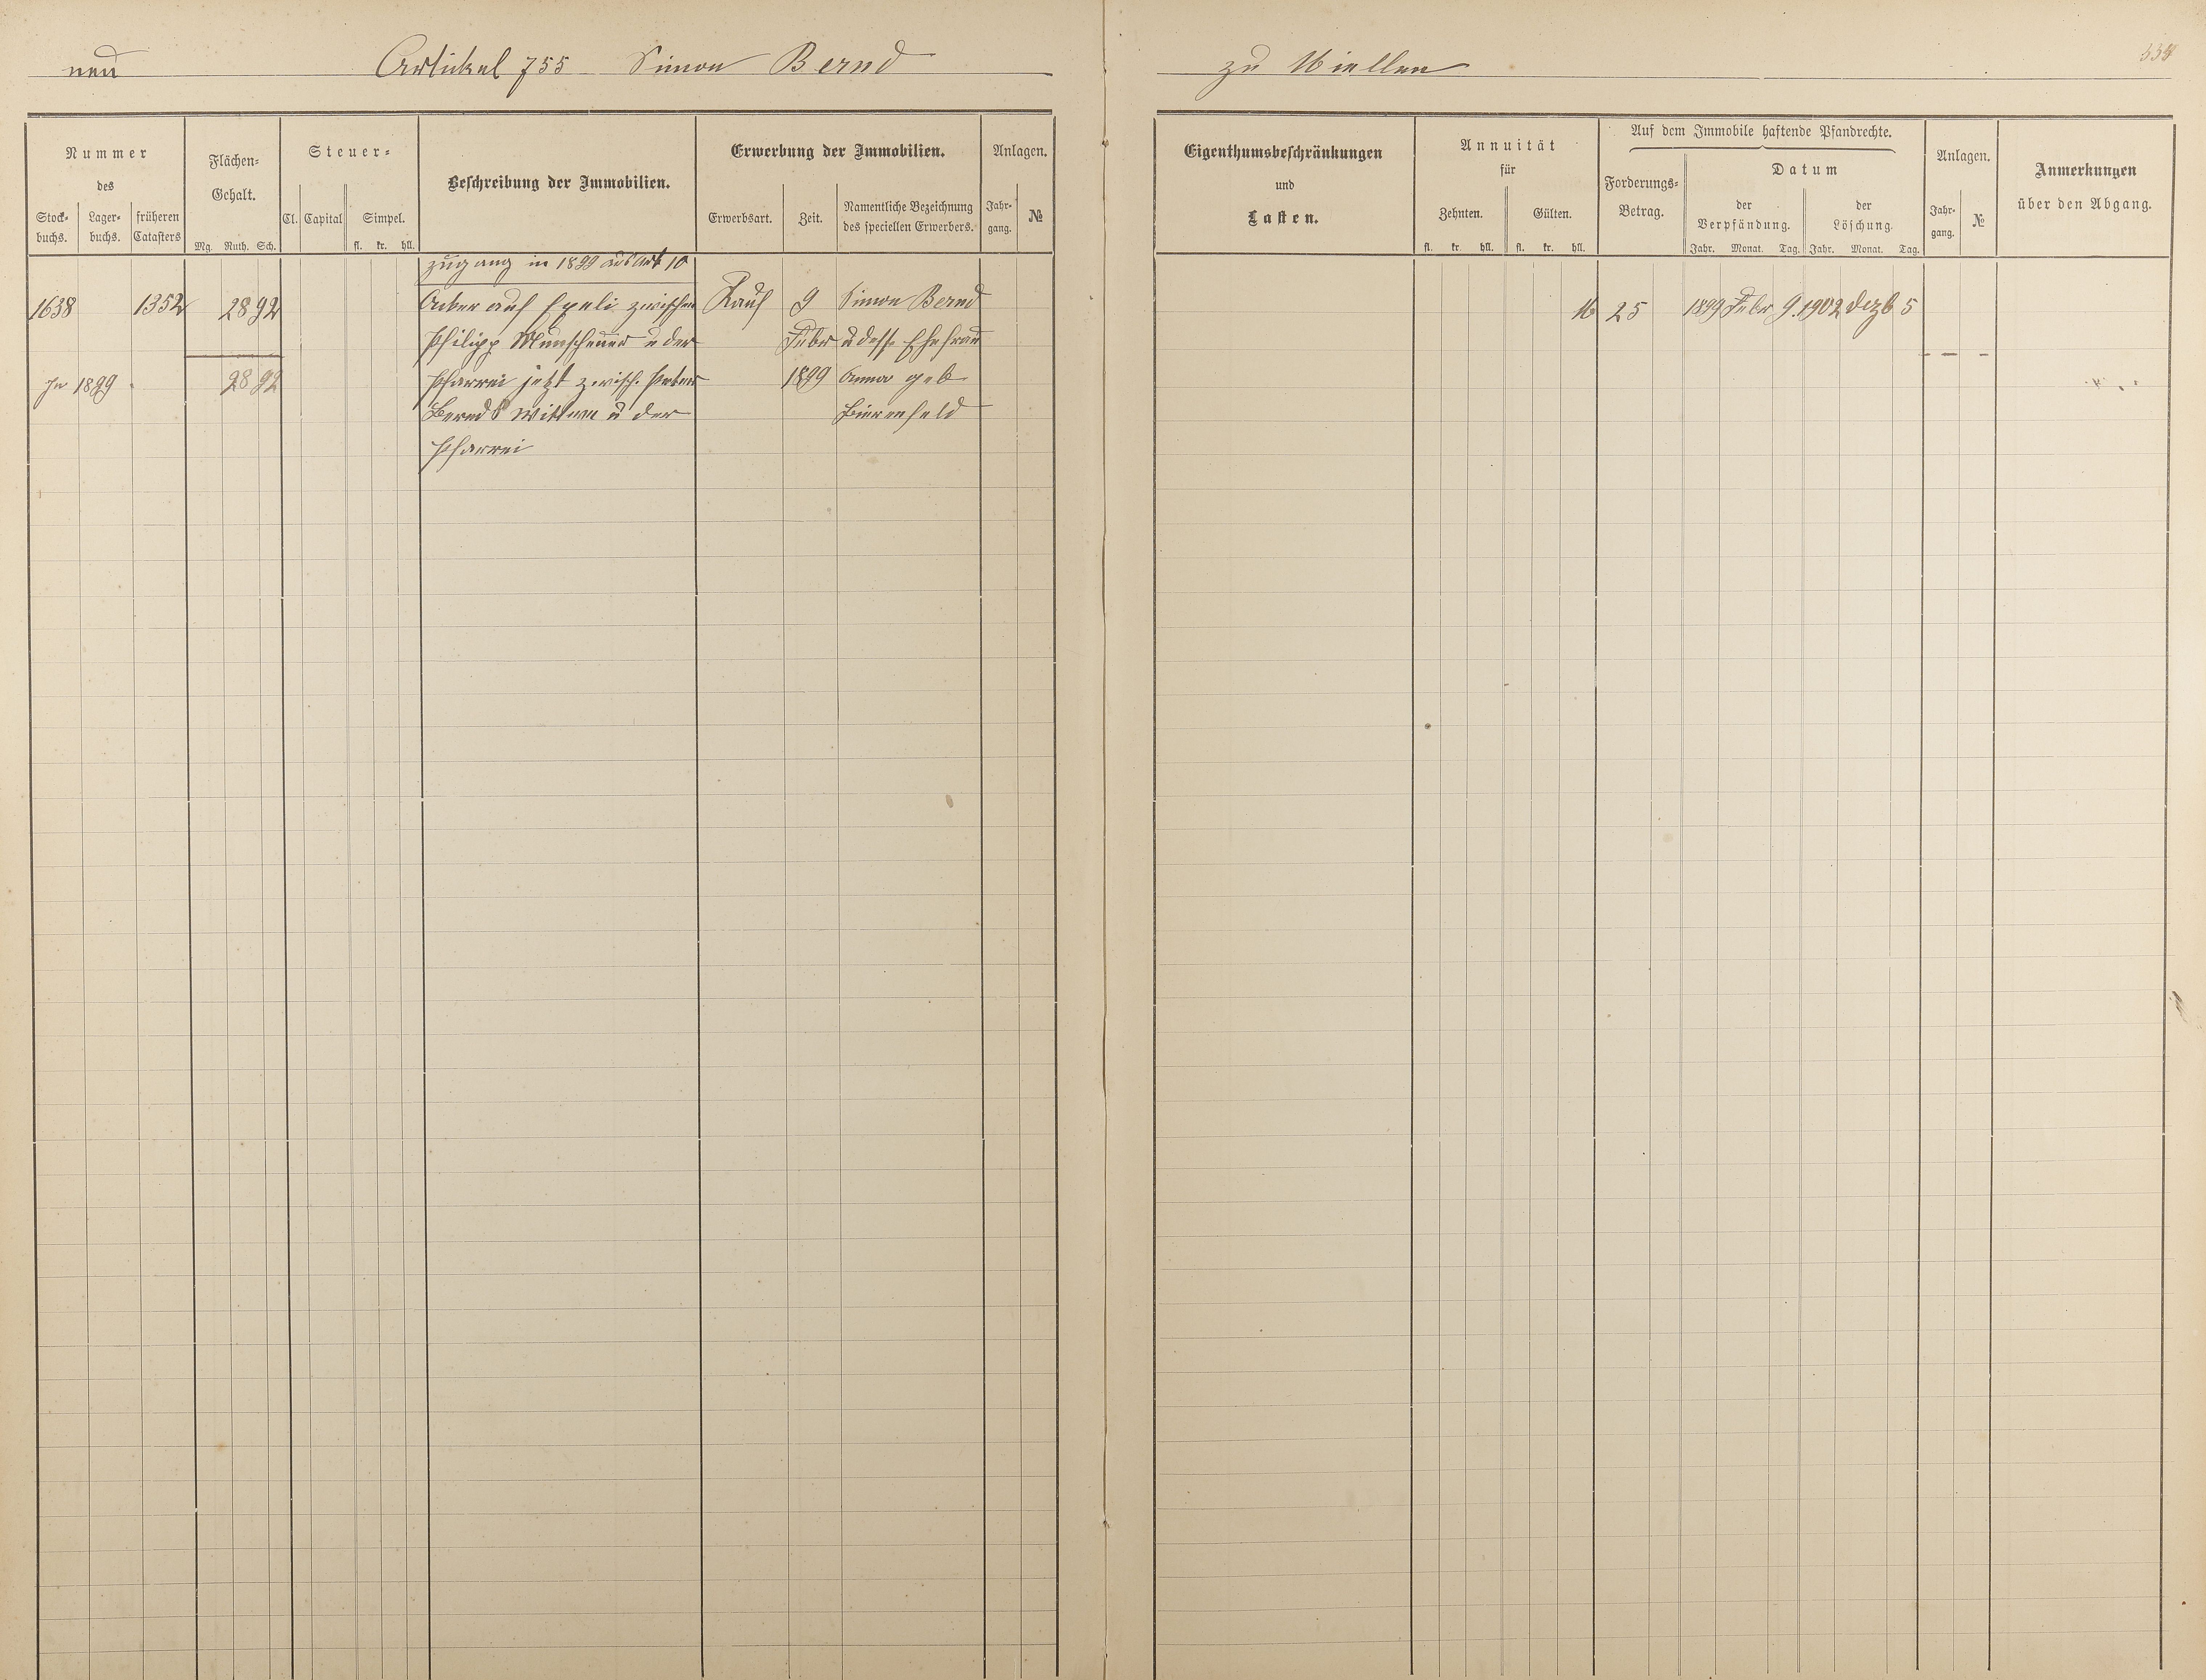 neu Artickel 755 Simon Bernd
zu Miellen
Nummer
des
Stock-
buchs.
Lager-
buchs.
früheren
Catasters
Flächen-
Gehalt.
Mg. Ruth. Sch.
Steuer-
Cl. Capital Simpel.
fl. kr. hll.
Beschreibung der Immobilien.
Erwerbung der Immobilien.
Erwerbsart. Zeit.
Namentliche Bezeichnung
des speciellen Erwerbers.
Anlagen.
Jahr-
gang.
№
zugang in 1899 aus Art 10
1638 1352 28 92 Acker auf zwischen Kauf 9 Simon Bernd
Philipp Munschauer u der Febr u dess Ehefrau
In 1899 28 92 Pfarrei jetzt zwisch. Peter 1899 Anna geb
Bernds Wittwe u der Bierenfeld
Pfarrei
Eigenthumsbeschränkungen
und
Lasten.
Annuität
für
Zehnten. Gülten.
fl. kr. hll. fl. kr. hll.
Auf dem Immobile haftende Pfandrechte.
Forderungs-
Betrag.
Datum
der
Verpfändung.
Jahr. Monat. Tag.
der
Löschung.
Jahr. Monat. Tag.
Anlagen.
Jahr-
gang.
№
Anmerkungen
über den Abgang.
25 1899 Febr 9. 1902 Dezb 5